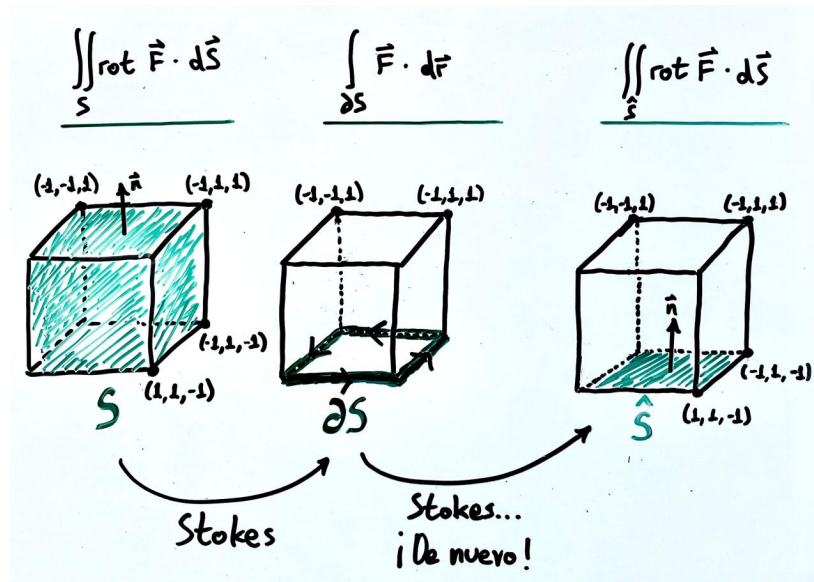 ∬ rot F⃗ · dS⃗
S
∫ F⃗ · dr⃗
∂S
∬ rot F⃗ · dS⃗
Ŝ
(-1,-1,1)
n⃗
(-1,1,1)
(-1,1,-1)
(1,1,-1)
S
(-1,-1,1)
(-1,1,1)
∂S
(-1,-1,1)
(-1,1,1)
n⃗
(-1,1,-1)
(1,1,-1)
Ŝ
Stokes
Stokes...
¡De nuevo!